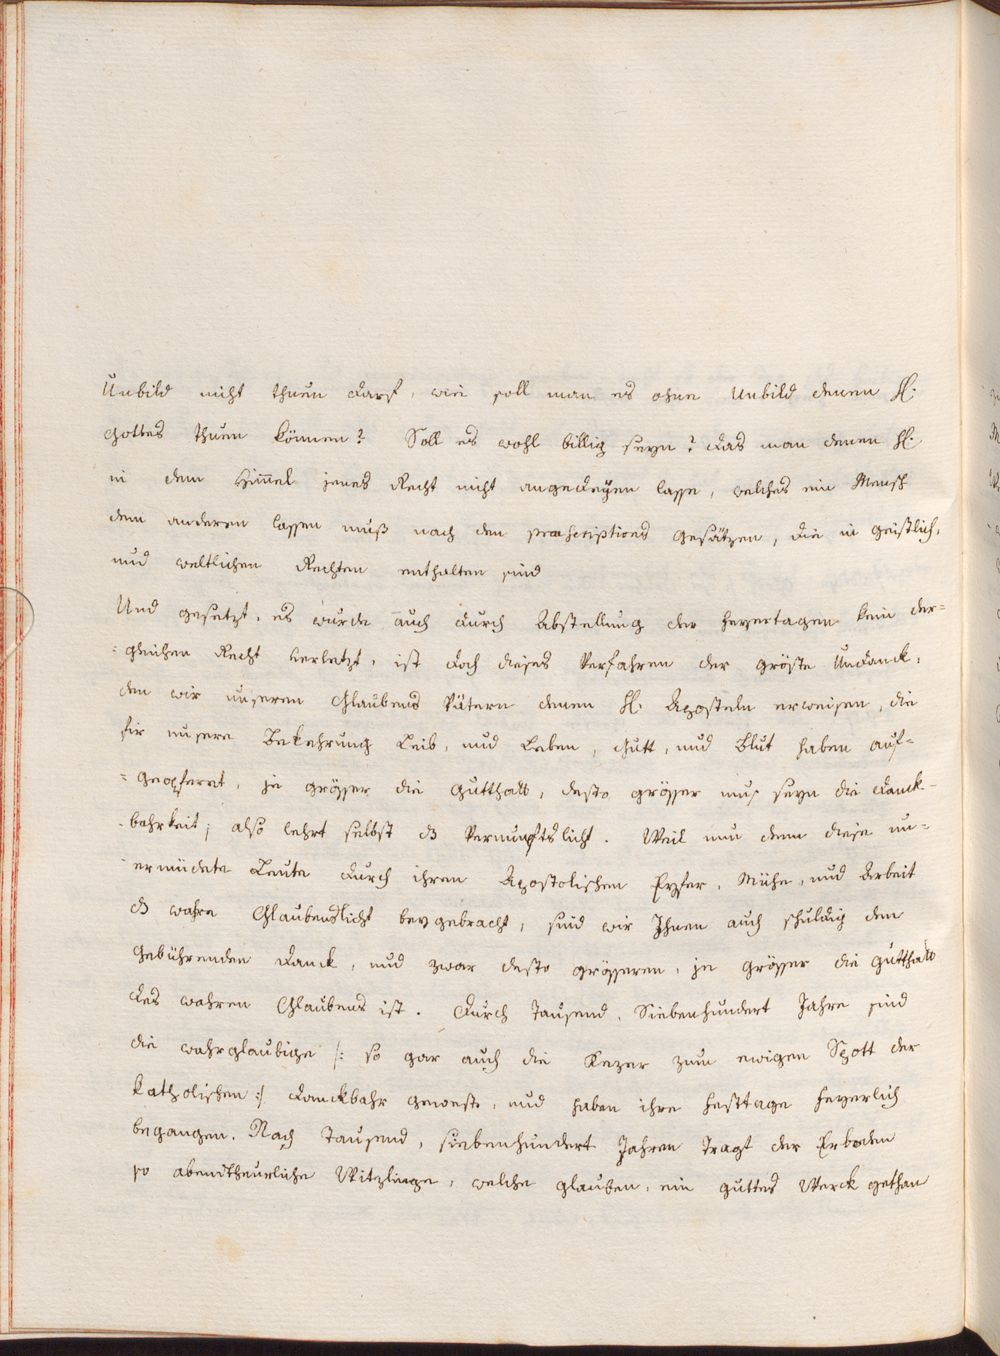 Unbild nicht thuen darf, wie soll man es ohne Unbild denen H.
Gottes thuen können? Soll es wohl billig seyn? das man denen H.
in dem Him̅el jenes Recht nicht angedeyen lasse, welches ein Mensch
dem anderen lassen muß nach den praescriptions gesätzen, die in geistlich,
und weltlichen Rechten enthalten sind
Und gesetzt, es wurde auch durch Abstellung der feyertagen kein der=
=gleichen Recht verletzt, ist doch dieses Verfahren der gröste Undanck,
den wir unseren Glaubens Vätern denen H. Aposteln erweisen, die
für unsere Bekehrung Leib, und Leben, Gutt, und Blut haben auf=
=geopferet, je grösser die Gutthatt, desto grösser mus seyn die Danck=
=bahrkeit; also lehrt selbst dz Vernunftslicht. Weil nun denn diese un=
ermüdete Leute durch ihren Apostolischen Eyfer, Mühe, und Arbeit
dz wahre Glaubenslicht beygebracht, sind wir Ihnen auch schuldig den
gebührenden Danck, und zwar desto grösseren, je grösser die Gutthatt
des wahren Glaubens ist. Durch Tausend, Siebenhundert Jahre sind
die wahrglaubige /: so gar auch die Kezer zum ewigen Spott der
Katholischen :/ danckbahr geweste, und haben ihre festtage feyerlich
begangen. Nach Tausend, siebenhundert Jahren Tragt der Erboden
so abendtheurliche Witzlinge, welche glauben, ein guttes Werck gethan